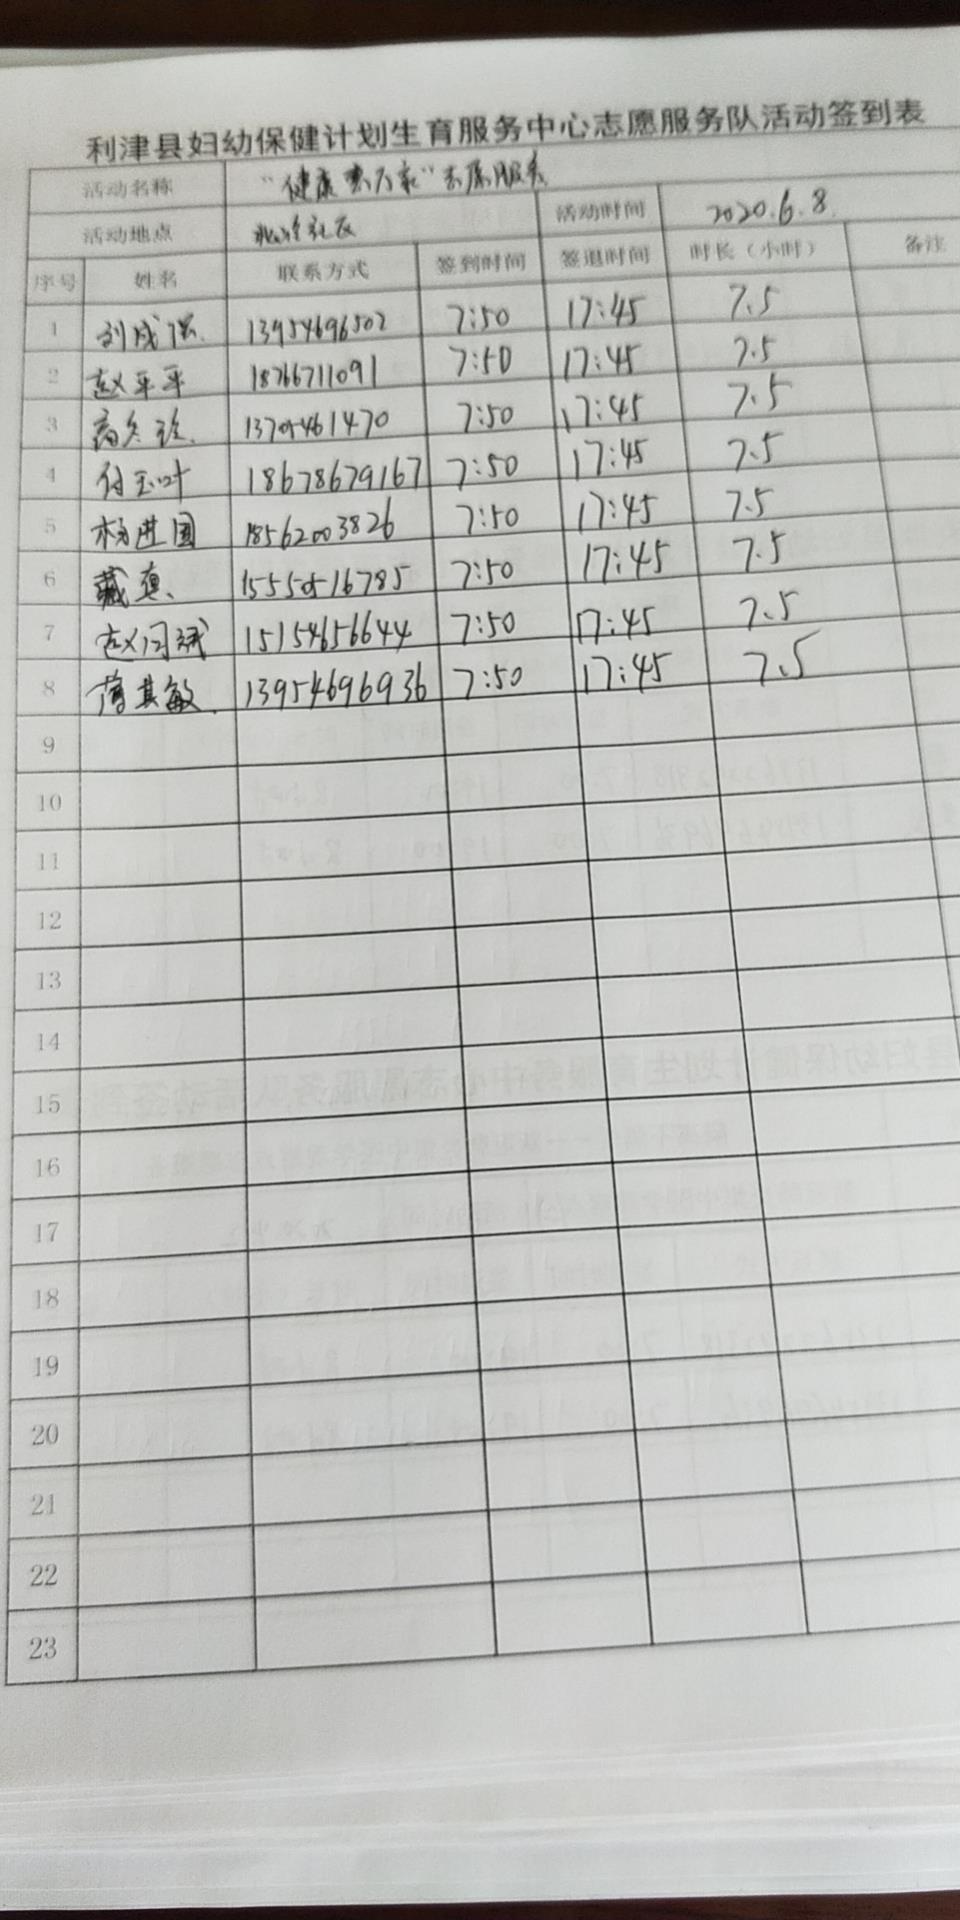 利津县妇幼保健计划生育服务中心志愿服务队活动签到表
活动名称 "健康惠万家"志愿服务
活动地点 社区 活动时间 2020.6.8.
序号 姓名 联系方式 签到时间 签退时间 时长（小时） 备注
1 刘成强 13954696502 7:50 17:45 7.5
2 赵平平 18766711091 7:50 17:45 7.5
3 高冬玲 13705461470 7:50 17:45 7.5
4 付玉叶 18678679167 7:50 17:45 7.5
5 杨进国 18562003826 7:50 17:45 7.5
6 藏 15550516785 7:50 17:45 7.5
7 赵闪斌 15154656644 7:50 17:45 7.5
8 蒋其敏 13954696936 7:50 17:45 7.5
9
10
11
12
13
14
15
16
17
18
19
20
21
22
23